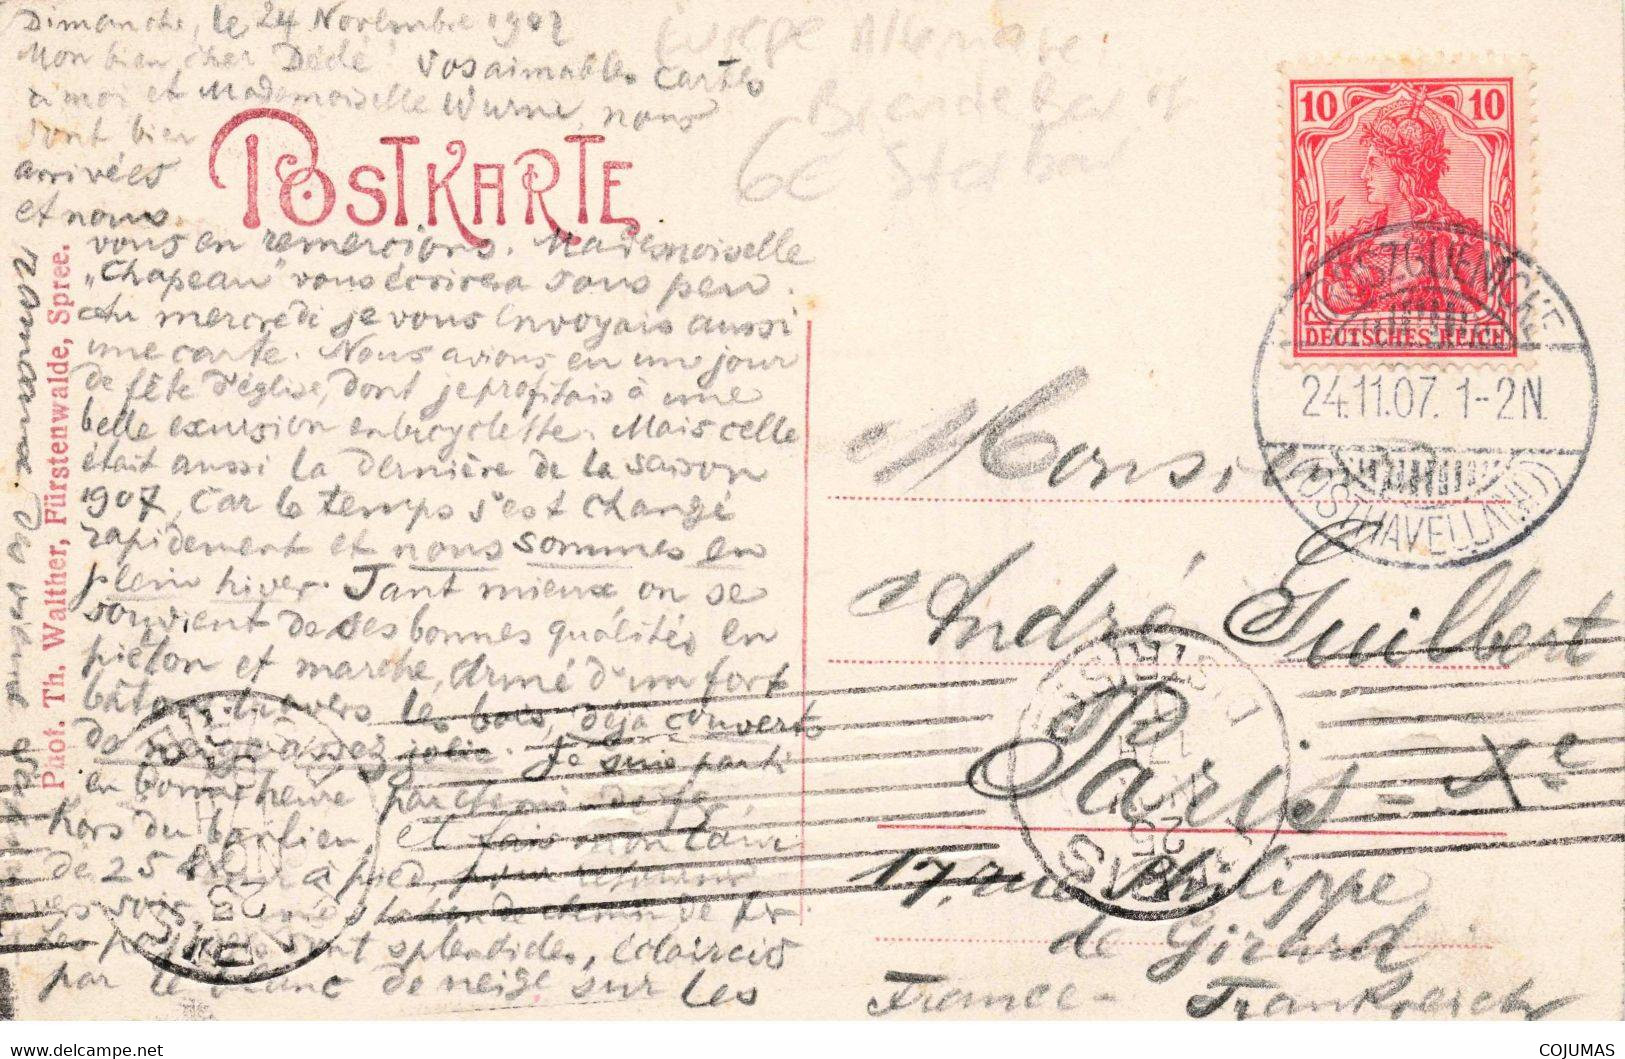 Dimanche, le 24 Novembre 1907
Mon bien cher Dédé! Vos aimables cartes
à moi et Mademoiselle Wurne, nous
sont bien
arrivées
et nous
POSTKARTE
vous en remercions. Mademoiselle
„Chapeau" vous écrirera sous peu.
Au mercredi je vous envoyais aussi
une carte. Nous avions en un jour
de fête d'église, dont je profitais à une
belle exursion en bicyclette. Mais celle
était aussi la dernière de la saison
1907, car le temps s'est changé
rapidement et nous sommes en
plein hiver. Tant mieux, on se
souvient de ses bonnes qualités en
piéton et marche, armé d'un fort
bâton travers les bois, déjà couverts
de neige assez jolie. Je suis parti
en bonne heure par chemin de fer
hors du banlieu, et fais mon tour
de 25 à pied, pour retourner
vers soir station de chemin de fer
Les sont splendides, éclaircis
par le blanc de neige sur les
Phot. Th. Walther, Fürstenwalde, Spree.
10 10
DEUTSCHES REICH
GROSZGLIENICKE
24.11.07. 1-2N.
(OSTHAVELLAND)
Monsieur
André Guilbert
Paris - Xe
17, rue Philippe
de Girard
France - Frankreich
PARIS
25
PARIS
DISTRIB
25
COJUMAS